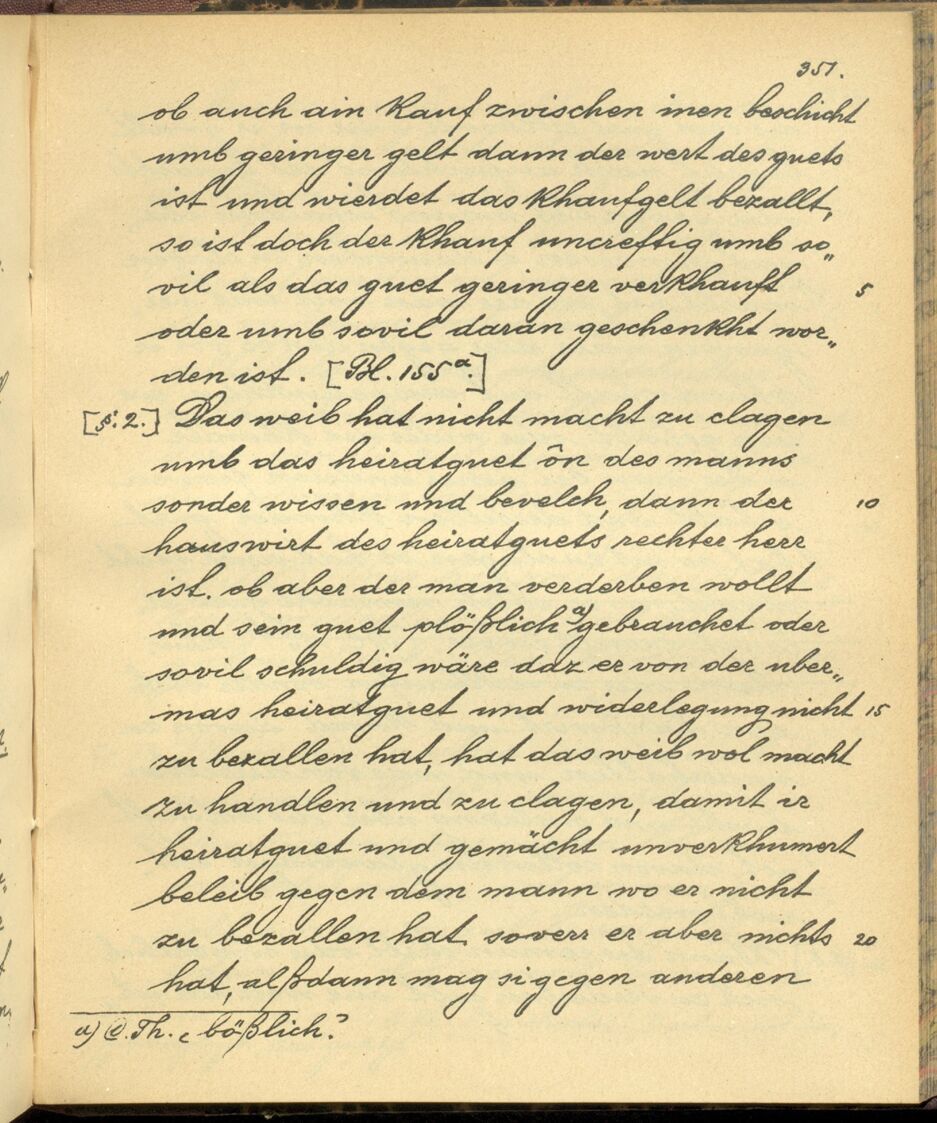 351.
ob auch ain Kauf zwischen inen beschicht
umb geringer gelt dann der wert des guets
ist und wierdet das Khaufgelt bezallt,
so ist doch der Khauf uncreftig umb so„
vil als das guet geringer verkhauft 5
oder umb sovil daran geschenkht wor„
den ist. [Bl. 155a.]
[§. 2.] Das weib hat nicht macht zu clagen
umb das heiratguet ôn des manns
sonder wissen und bevelch, dann der 10
hauswirt des heiratguets rechter herr
ist. ob aber der man verderben wollt
und sein guet plößlich a) gebrauchet oder
sovil schuldig wäre daz er von der uber„
mas heiratguet und widerlegung nicht 15
zu bezallen hat, hat das weib wol macht
zu handlen und zu clagen, damit ir
heiratguet und gemächt unverkhumert
beleib gegen dem mann wo er nicht
zu bezallen hat, soverr er aber nichts 20
hat, alßdann mag si gegen anderen
a) Th. bößlich?